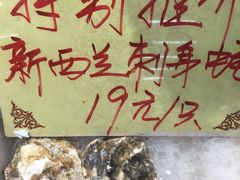 特别推介
新西兰刺身蚝
19元/只